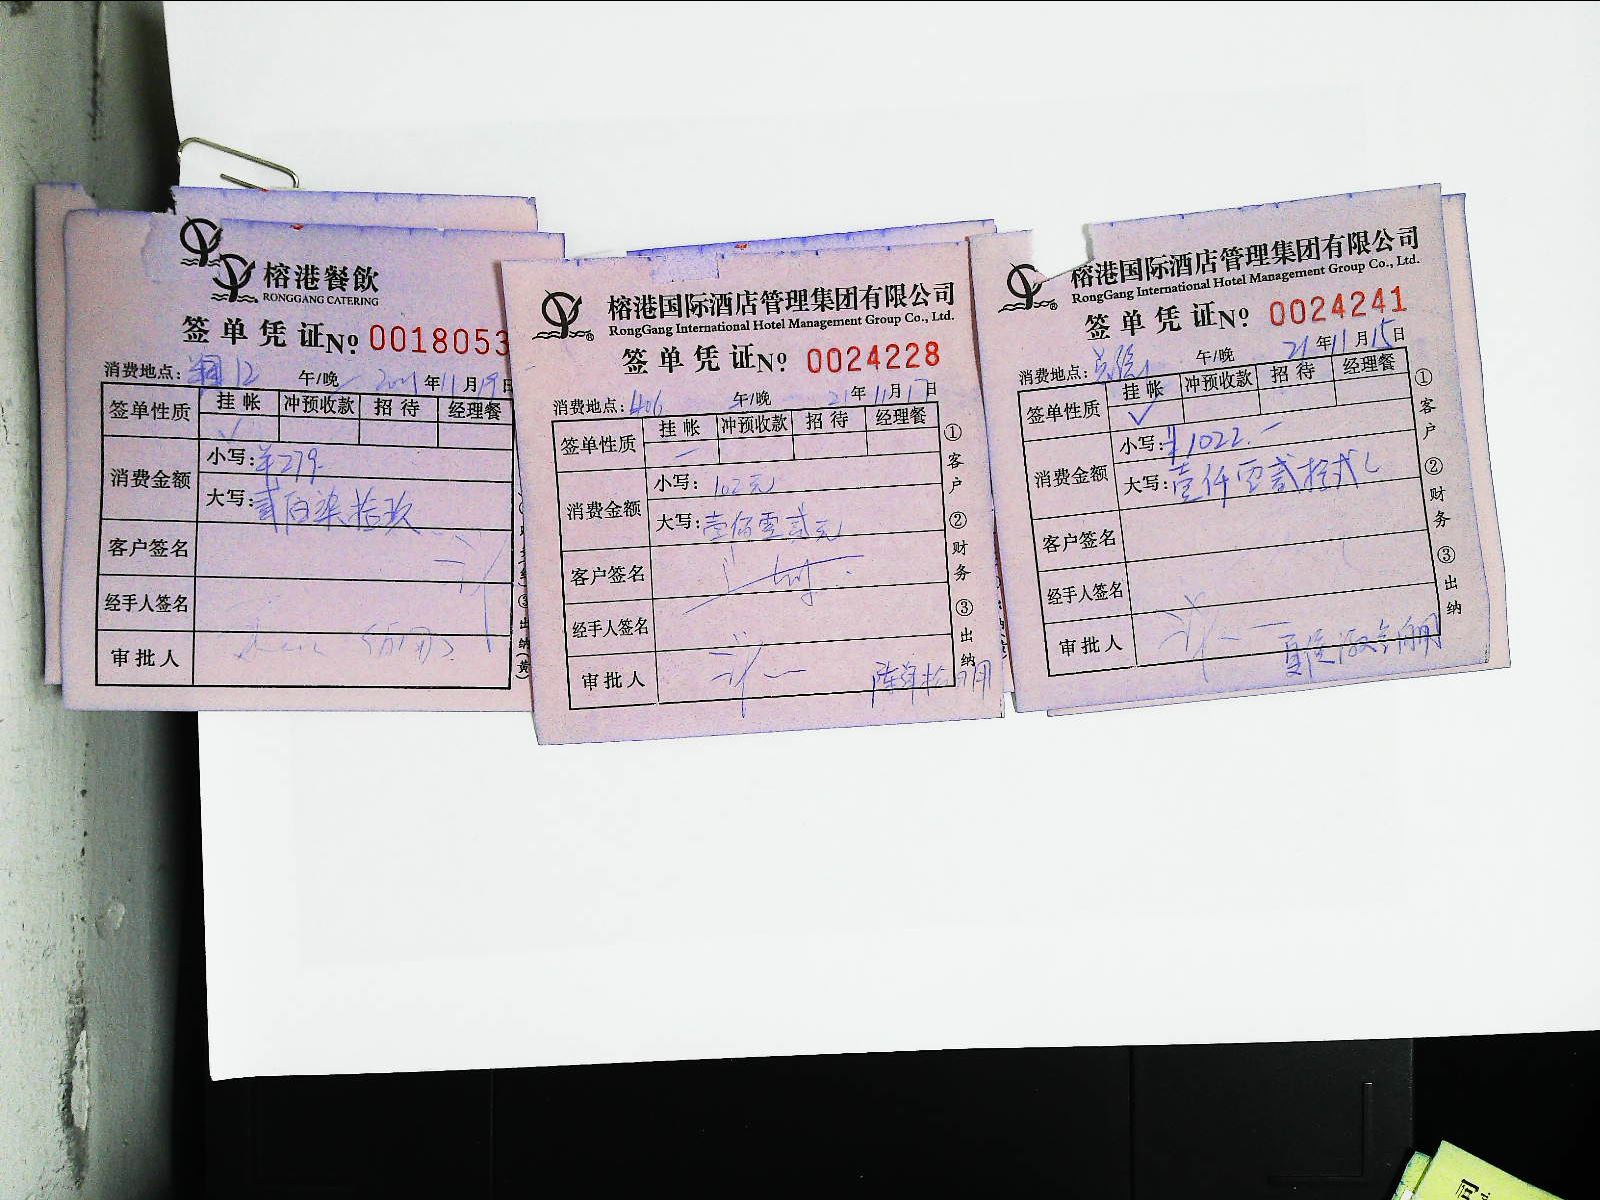 榕港餐飲
RONGGANG CATERING
签单凭证No 0018053
消费地点: 12 午/晚 2021年11月19日
签单性质 挂帐 冲预收款 招待 经理餐
消费金额
小写:¥279.
大写:贰佰柒拾玖
客户签名
经手人签名
审批人
③出纳(黄)
榕港国际酒店管理集团有限公司
RongGang International Hotel Management Group Co., Ltd.
签单凭证No 0024228
消费地点:406 午/晚 21年11月17日
签单性质 挂帐 冲预收款 招待 经理餐
消费金额
小写: 102元
大写:壹佰零贰元
客户签名
经手人签名
审批人
①客户 ②财务 ③出纳
榕港国际酒店管理集团有限公司
RongGang International Hotel Management Group Co., Ltd.
签单凭证No 0024241
消费地点: 午/晚 21年11月15日
签单性质 挂帐 冲预收款 招待 经理餐
消费金额
小写:¥1022.-
大写:壹仟零贰拾贰
客户签名
经手人签名
审批人
①客户 ②财务 ③出纳
司